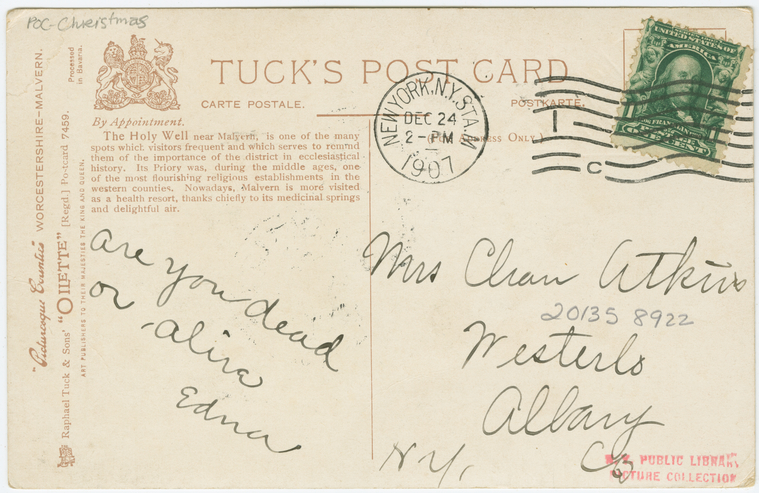 PoC-Christmas
TUCK'S POST CARD
CARTE POSTALE.
POSTKARTE.
By Appointment.
The Holy Well near Malvern, is one of the many
spots which visitors frequent and which serves to remind
them of the importance of the district in ecclesiastical
history. Its Priory was, during the middle ages, one
of the most flourishing religious establishments in the
western counties. Nowadays, Malvern is more visited
as a health resort, thanks chiefly to its medicinal springs
and delightful air.
"Picturesque Counties" WORCESTERSHIRE–MALVERN.
Processed
in Bavaria.
Raphael Tuck & Sons' "OILETTE" [Regd.] Postcard 7459.
ART PUBLISHERS TO THEIR MAJESTIES THE KING AND QUEEN.
NEW YORK, N.Y. STA.
DEC 24
2-PM
1907
ADDRESS ONLY.)
1
C
UNITED STATES OF
AMERICA
FRANKLIN
are you dead
or alive
Edna
Mrs Chan Atkins
20135 8922
Westerlo
Albany
Co
N.Y.
PUBLIC LIBRARY
PICTURE COLLECTION